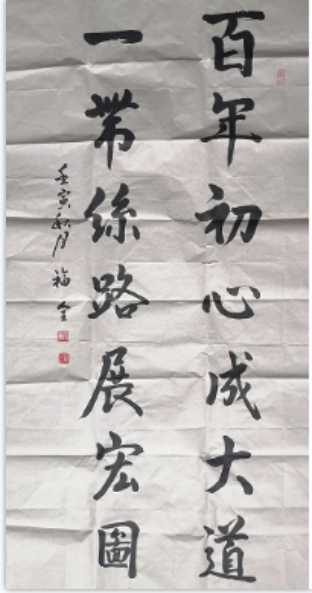 百年初心成大道
一帶絲路展宏圖
壬寅秋月 福全